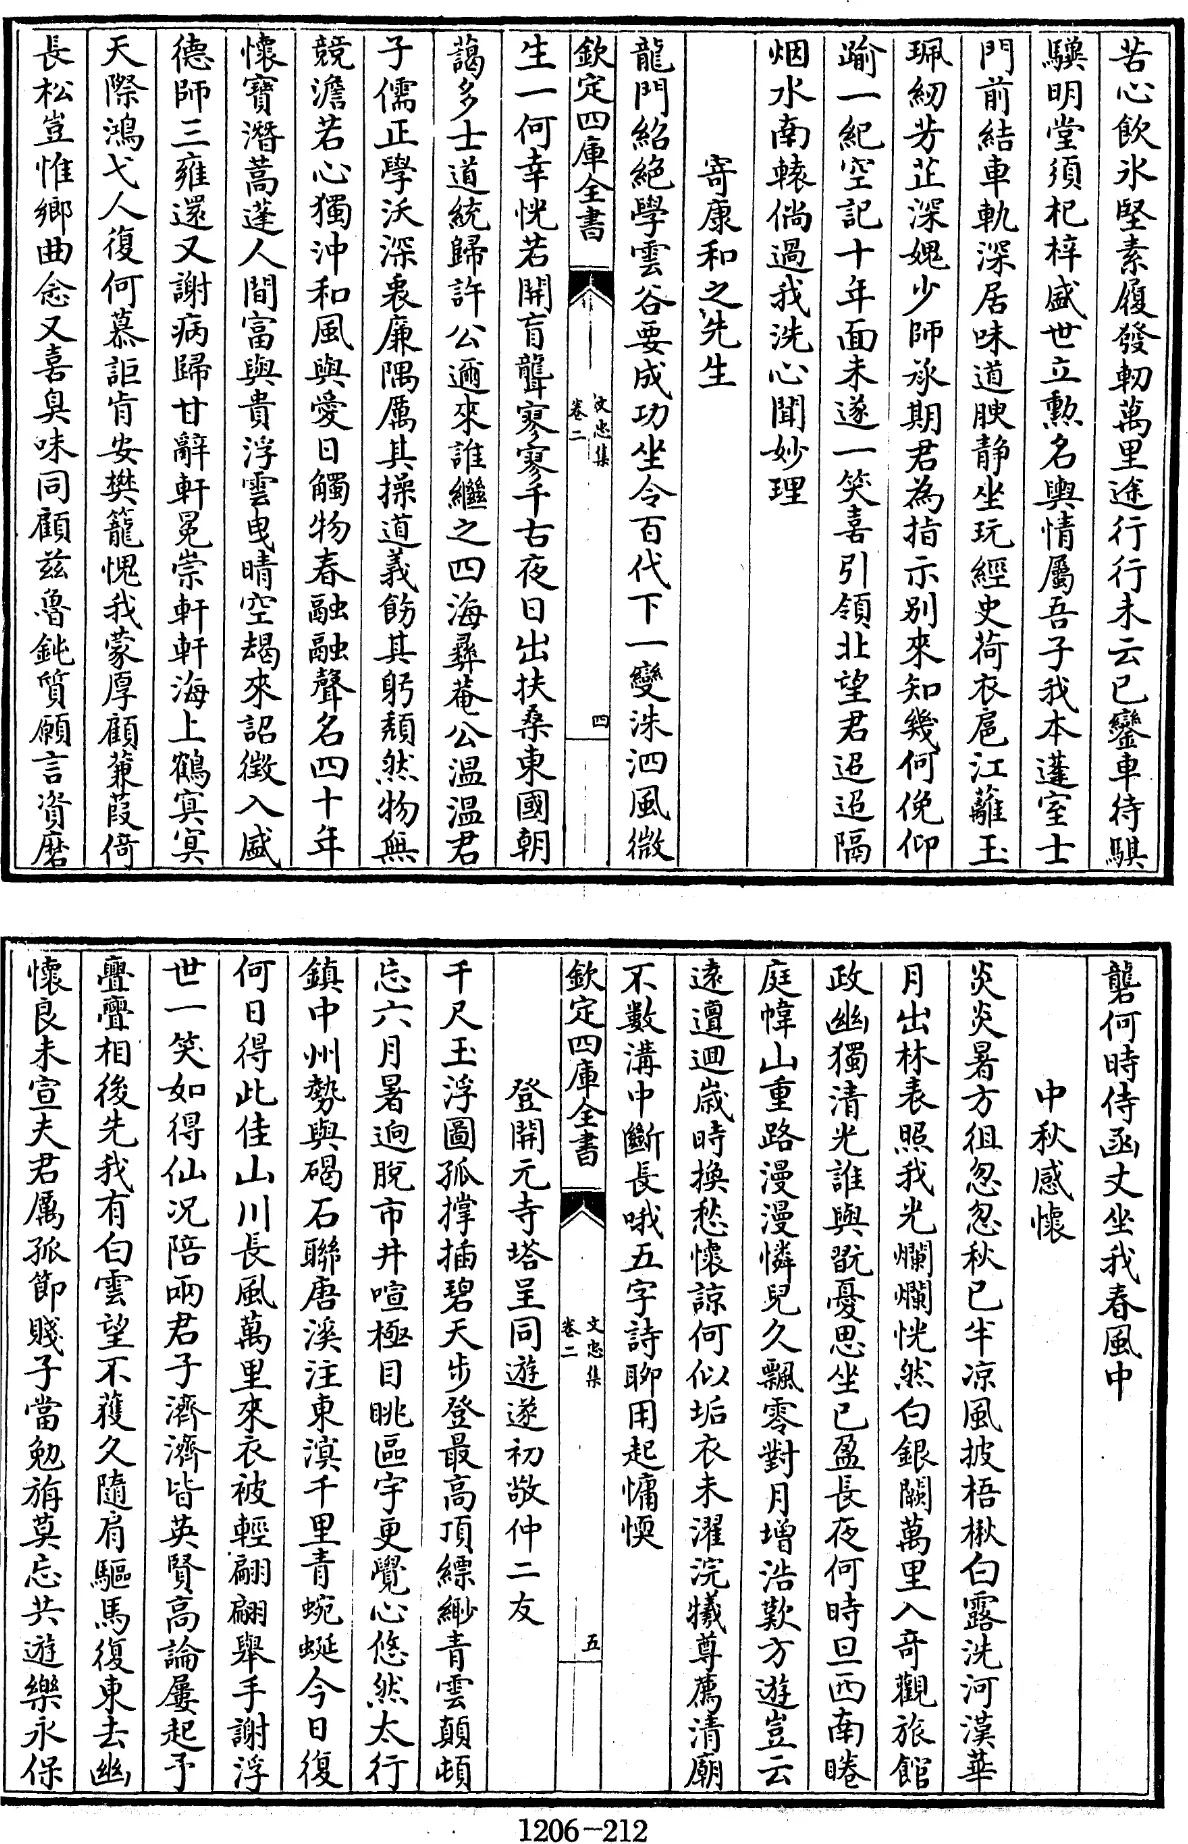 苦心飲氷堅素履發軔萬里途行行未云已鑾車待騏
驥明堂須杞梓盛世立勲名輿情屬吾子我本蓬室士
門前結車軌深居味道腴静坐玩經史荷衣扈江蘺玉
珮紉芳芷深媿少師承期君為指示别來知幾何俛仰
踰一紀空記十年面未遂一笑喜引領北望君迢迢隔
烟水南轅倘過我洗心聞妙理
寄康和之先生
龍門紹絶學雲谷要成功坐令百代下一變洙泗風微
欽定四庫全書
文忠集
卷二
四
生一何幸恍若開盲聾寥寥千古夜日出扶桑東國朝
藹多士道統歸許公邇來誰繼之四海彛菴公温温君
子儒正學沃深衷廉隅厲其操道義飭其躬頽然物無
競澹若心獨沖和風與愛日觸物春融融聲名四十年
懷寶潛蒿蓬人間富與貴浮雲曳晴空朅來詔徴入盛
德師三雍還又謝病歸甘辭軒冕崇軒軒海上鶴㝠㝠
天際鴻弋人復何慕詎肯安樊籠愧我蒙厚顧蒹葭倚
長松豈惟鄉曲念又喜臭味同顧兹魯鈍質願言資磨
礱何時侍函丈坐我春風中
中秋感懷
炎炎暑方徂忽忽秋已半凉風披梧楸白露洗河漢華
月出林表照我光爛爛恍然白銀闕萬里入奇觀旅館
政幽獨清光誰與翫憂思坐已盈長夜何時旦西南睠
庭幃山重路漫漫憐兒久飄零對月增浩歎方遊豈云
遠邅迴嵗時換愁懷諒何似垢衣未濯浣犧尊薦清廟
不數溝中斷長哦五字詩聊用起慵愞
欽定四庫全書
文忠集
卷二
五
登開元寺塔呈同遊遂初敬仲二友
千尺玉浮圖孤撑插碧天步登最高頂縹緲青雲顛頓
忘六月暑逈脫市井喧極目眺區宇更覺心悠然太行
鎮中州勢與碣石聯唐溪注東溟千里青蜿蜒今日復
何日得此佳山川長風萬里來衣被輕翩翩舉手謝浮
世一笑如得仙况陪兩君子濟濟皆英賢高論屢起予
亹亹相後先我有白雲望不獲久隨肩驅馬復東去幽
懷良未宣夫君厲孤節賤子當勉旃莫忘共遊樂永保
1206-212